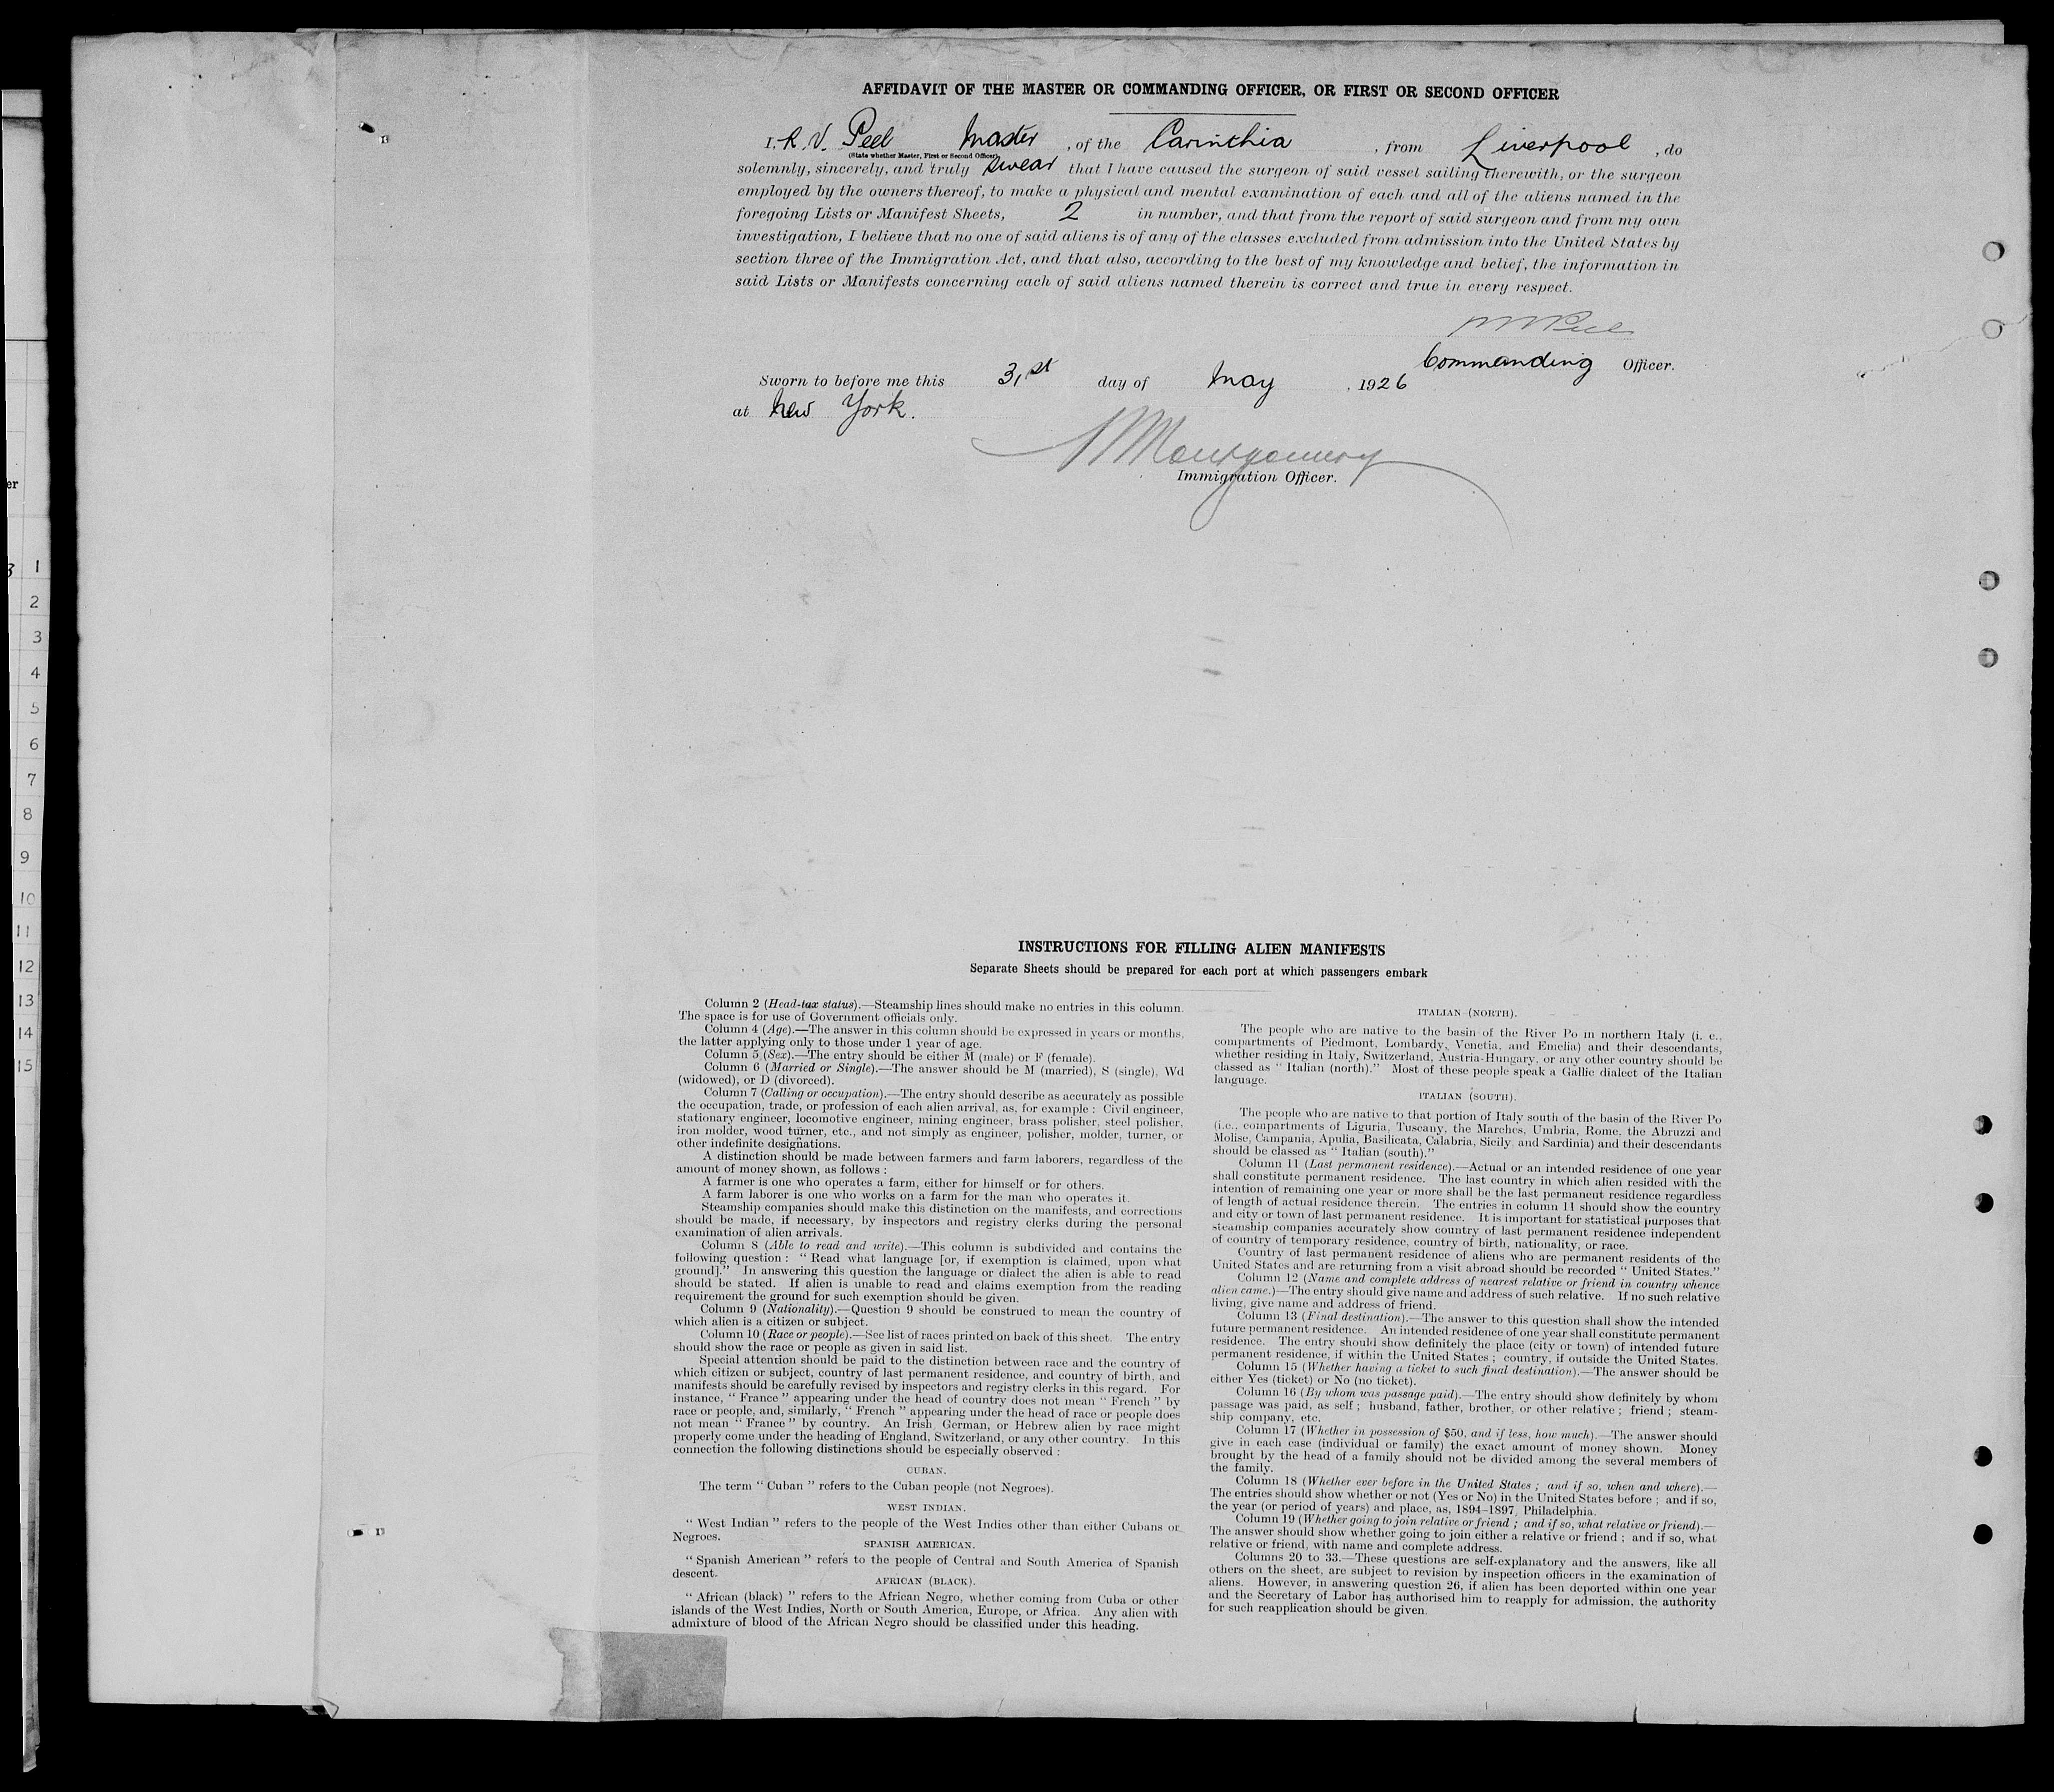 AFFIDAVIT OF THE MASTER OR COMMANDING OFFICER, OR FIRST OR SECOND OFFICER
I, R. V. Peel Master , of the Carinthia , from Liverpool , do
(State whether Master, First or Second Officer)
solemnly, sincerely, and truly swear that I have caused the surgeon of said vessel sailing therewith, or the surgeon
employed by the owners thereof, to make a physical and mental examination of each and all of the aliens named in the
foregoing Lists or Manifest Sheets, 2 in number, and that from the report of said surgeon and from my own
investigation, I believe that no one of said aliens is of any of the classes excluded from admission into the United States by
section three of the Immigration Act, and that also, according to the best of my knowledge and belief, the information in
said Lists or Manifests concerning each of said aliens named therein is correct and true in every respect.
Commanding Officer.
Sworn to before me this 31st day of May , 1926
at New York.
Montgomery
Immigration Officer.
er
3 1
2
3
4
5
6
7
8
9
10
11
12
13
14
15
INSTRUCTIONS FOR FILLING ALIEN MANIFESTS
Separate Sheets should be prepared for each port at which passengers embark
Column 2 (Head-tax status).—Steamship lines should make no entries in this column.
The space is for use of Government officials only.
Column 4 (Age).—The answer in this column should be expressed in years or months,
the latter applying only to those under 1 year of age.
Column 5 (Sex).—The entry should be either M (male) or F (female).
Column 6 (Married or Single).—The answer should be M (married), S (single), Wd
(widowed), or D (divorced).
Column 7 (Calling or occupation).—The entry should describe as accurately as possible
the occupation, trade, or profession of each alien arrival, as, for example : Civil engineer,
stationary engineer, locomotive engineer, mining engineer, brass polisher, steel polisher,
iron molder, wood turner, etc., and not simply as engineer, polisher, molder, turner, or
other indefinite designations.
A distinction should be made between farmers and farm laborers, regardless of the
amount of money shown, as follows :
A farmer is one who operates a farm, either for himself or for others.
A farm laborer is one who works on a farm for the man who operates it.
Steamship companies should make this distinction on the manifests, and corrections
should be made, if necessary, by inspectors and registry clerks during the personal
examination of alien arrivals.
Column 8 (Able to read and write).—This column is subdivided and contains the
following question : " Read what language [or, if exemption is claimed, upon what
ground]." In answering this question the language or dialect the alien is able to read
should be stated. If alien is unable to read and claims exemption from the reading
requirement the ground for such exemption should be given.
Column 9 (Nationality).—Question 9 should be construed to mean the country of
which alien is a citizen or subject.
Column 10 (Race or people).—See list of races printed on back of this sheet. The entry
should show the race or people as given in said list.
Special attention should be paid to the distinction between race and the country of
which citizen or subject, country of last permanent residence, and country of birth, and
manifests should be carefully revised by inspectors and registry clerks in this regard. For
instance, " France " appearing under the head of country does not mean " French " by
race or people, and, similarly, " French " appearing under the head of race or people does
not mean " France " by country. An Irish, German, or Hebrew alien by race might
properly come under the heading of England, Switzerland, or any other country. In this
connection the following distinctions should be especially observed :
CUBAN.
The term " Cuban " refers to the Cuban people (not Negroes).
WEST INDIAN.
" West Indian " refers to the people of the West Indies other than either Cubans or
Negroes.
SPANISH AMERICAN.
" Spanish American " refers to the people of Central and South America of Spanish
descent.
AFRICAN (BLACK).
" African (black) " refers to the African Negro, whether coming from Cuba or other
islands of the West Indies, North or South America, Europe, or Africa. Any alien with
admixture of blood of the African Negro should be classified under this heading.
ITALIAN (NORTH).
The people who are native to the basin of the River Po in northern Italy (i. e.,
compartments of Piedmont, Lombardy, Venetia, and Emelia) and their descendants,
whether residing in Italy, Switzerland, Austria-Hungary, or any other country should be
classed as " Italian (north)." Most of these people speak a Gallic dialect of the Italian
language.
ITALIAN (SOUTH).
The people who are native to that portion of Italy south of the basin of the River Po
(i.e., compartments of Liguria, Tuscany, the Marches, Umbria, Rome, the Abruzzi and
Molise, Campania, Apulia, Basilicata, Calabria, Sicily, and Sardinia) and their descendants
should be classed as " Italian (south)."
Column 11 (Last permanent residence).—Actual or an intended residence of one year
shall constitute permanent residence. The last country in which alien resided with the
intention of remaining one year or more shall be the last permanent residence regardless
of length of actual residence therein. The entries in column 11 should show the country
and city or town of last permanent residence. It is important for statistical purposes that
steamship companies accurately show country of last permanent residence independent
of country of temporary residence, country of birth, nationality, or race.
Country of last permanent residence of aliens who are permanent residents of the
United States and are returning from a visit abroad should be recorded " United States."
Column 12 (Name and complete address of nearest relative or friend in country whence
alien came.)—The entry should give name and address of such relative. If no such relative
living, give name and address of friend.
Column 13 (Final destination).—The answer to this question shall show the intended
future permanent residence. An intended residence of one year shall constitute permanent
residence. The entry should show definitely the place (city or town) of intended future
permanent residence, if within the United States ; country, if outside the United States.
Column 15 (Whether having a ticket to such final destination).—The answer should be
either Yes (ticket) or No (no ticket).
Column 16 (By whom was passage paid).—The entry should show definitely by whom
passage was paid, as self ; husband, father, brother, or other relative ; friend ; steam-
ship company, etc.
Column 17 (Whether in possession of $50, and if less, how much).—The answer should
give in each case (individual or family) the exact amount of money shown. Money
brought by the head of a family should not be divided among the several members of
the family.
Column 18 (Whether ever before in the United States ; and if so, when and where).—
The entries should show whether or not (Yes or No) in the United States before ; and if so,
the year (or period of years) and place, as, 1894–1897, Philadelphia.
Column 19 (Whether going to join relative or friend ; and if so, what relative or friend).—
The answer should show whether going to join either a relative or friend ; and if so, what
relative or friend, with name and complete address.
Columns 20 to 33.—These questions are self-explanatory and the answers, like all
others on the sheet, are subject to revision by inspection officers in the examination of
aliens. However, in answering question 26, if alien has been deported within one year
and the Secretary of Labor has authorised him to reapply for admission, the authority
for such reapplication should be given.